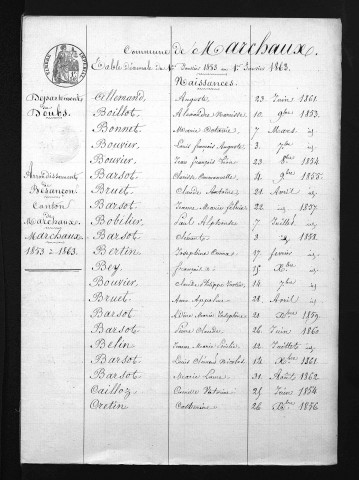 Commune de Marchaux.
Table décennale du 1er Janvier 1853 au 1er Janvier 1863.
Naissances.
Département
du
Doubs.
Arrondissement
de
Besançon
Canton
de
Marchaux.
Marchaux.
1853 à 1863.
Allemand, Auguste 23 Juin 1861.
Boillot, Alexandre 10 9bre 1853.
Bonnet, Marie 7 Mars id.
Bouvier, Louis françois Auguste 3 id.
Bouvier, Jean françois 1854
Barsot, Clarisse 4 9bre 1855.
Bruet, Claude Antoine 21 Avril id.
Barsot, Jeanne Marie 22 id. 1857.
Bobilier, Paul Alphonse 7 Juillet id.
Barsot, Clément 3 1858.
Bertin, Joséphine 17 février id.
Bey, françois 15 Xbre id.
Bouvier, Claude Philippe 14 id.
Bruet, 28 Avril id.
Barsot, Marie Joséphine 21 1859.
Barsot, Pierre Claude 26 Juin 1860.
Belin, Jeanne Marie 12 Juillet id.
Barsot, Louis Nicolas 14 Xbre 1861.
Barsot, Marie 31 Août 1862
Cailloz, Victorine 25 Juin 1854
Cretin, Catherine 26 Xbre 1856